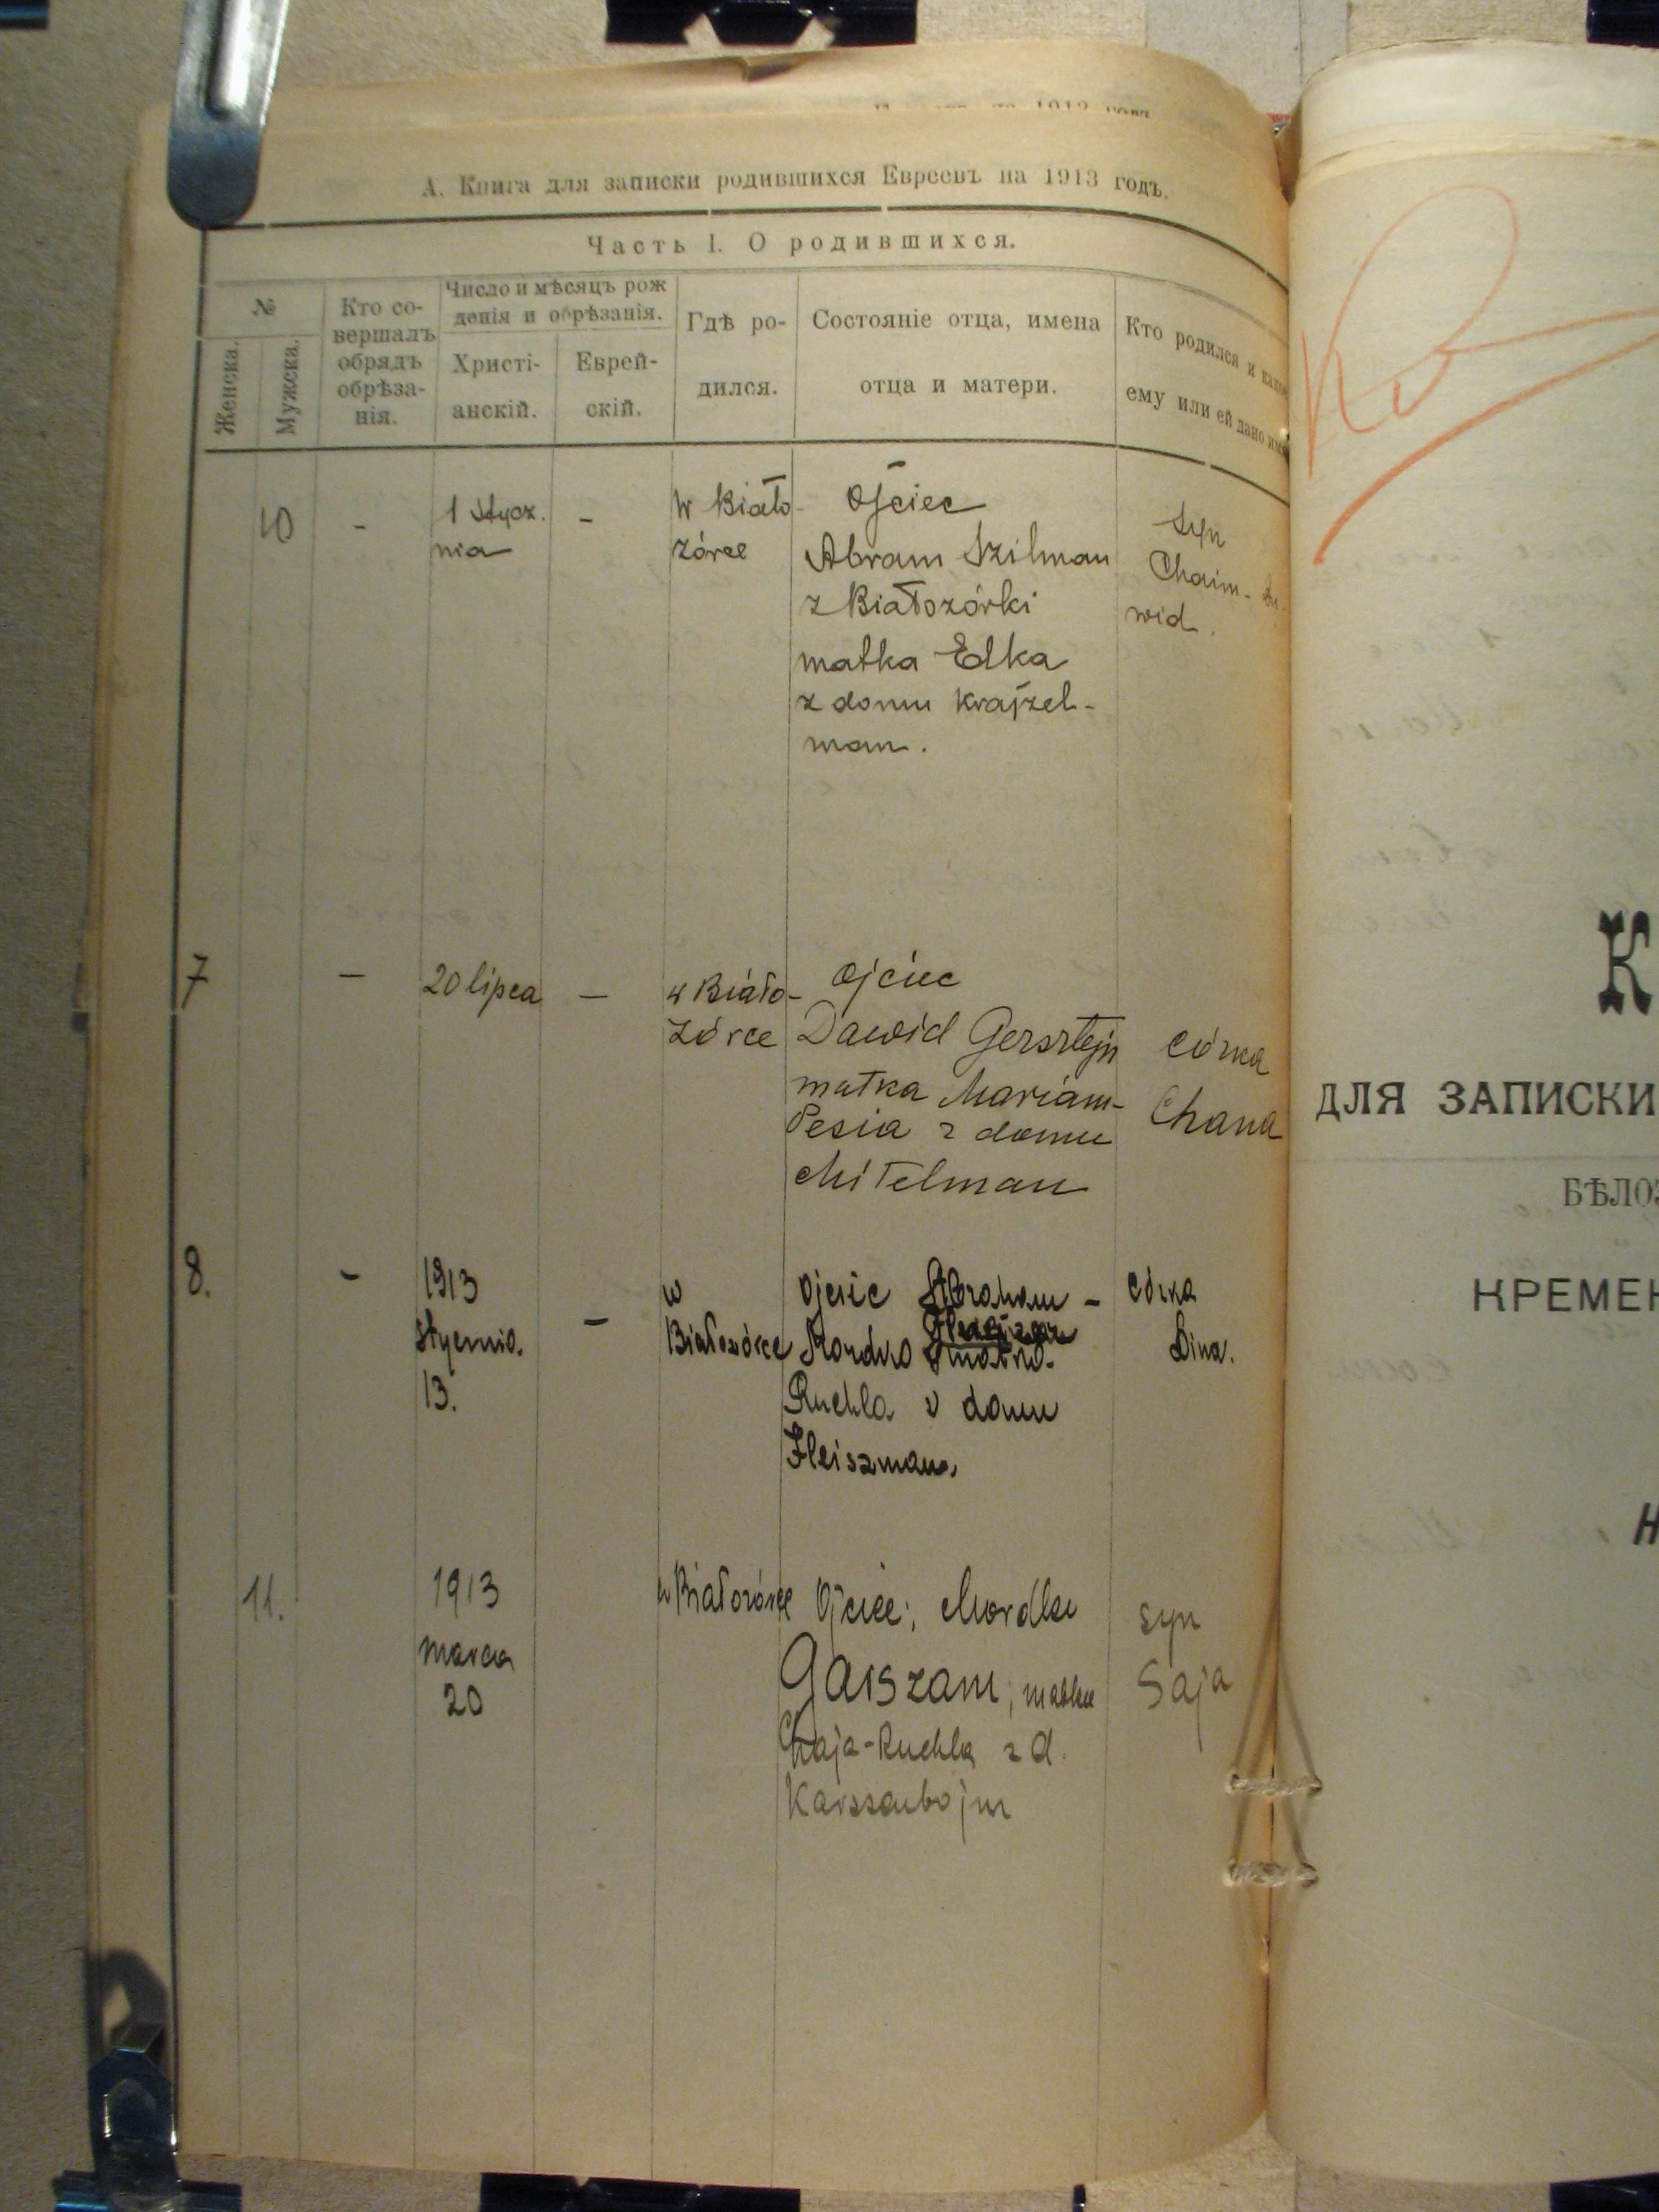 на 1913 годъ
А. Книга для записки родившихся Евреевъ на 1913 годъ.
Часть I. О родившихся.
№
Женска.
Мужска.
Кто со-
вершалъ
обрядъ
обрѣза-
нія.
Число и мѣсяцъ рож
денія и обрѣзанія.
Христі-
анскій.
Еврей-
скій.
Гдѣ ро-
дился.
Состояніе отца, имена
отца и матери.
Кто родился и какое
ему или ей дано имя
10
-
1 stycz.
nia
-
w Biało-
zórce
Ojciec
Abram Szilman
z Białozórki
matka Edka
z domu Krajzel-
man.
Syn
Chaim-
wid.
7
-
20 lipca
-
w Biało-
zórce
Ojciec
Dawid Gersztejn
matka Mariam-
Pesia z domu
Mitelman
córka
Chana
8.
-
1913
Stycznia
13.
-
w
Białozórce
Ojciec Abraham -
Mordko matka
Ruchla z domu
Fleiszman.
Córka
Dina.
11.
1913
marca
20
w Białozórce
Ojciec; Mordko
Gaiszam; matka
Chaja-Ruchla z d.
syn
Saja
К
ДЛЯ ЗАПИСКИ
БѢЛОЗ
КРЕМЕН
Н